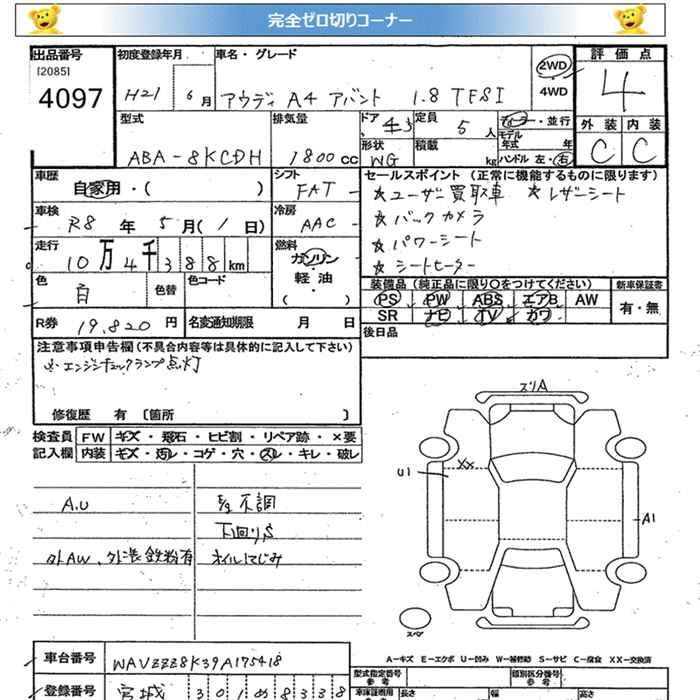 完全ゼロ切りコーナー
出品番号 初度登録年月 車名・グレード 2WD 評価点
[2085]
4097 H21 6月 アウディ A4 アバント 1.8 TFSI 4WD 4
型式 排気量 ドア 43 定員 5人 ディーラー・並行 外装 内装
ABA-8KCDH 1800cc 形状 WG 積載 kg モデル年式 年 C C
ハンドル 左・右
車歴 シフト セールスポイント (正常に機能するものに限ります)
自家用・( ) FAT ☆ユーザー買取車 ☆レザーシート
車検 冷房 ☆バックカメラ
R8年5月(1日) AAC ☆パワーシート
走行 燃料 ☆シートヒーター
10万4千388km ガソリン・軽油・( )
色 色替 色コード 装備品(純正品に限り○をつけてください) 新車保証書
白 PS PW ABS エアB AW 有・無
R券 19,820円 名変通知期限 月 日 SR ナビ TV カワ
後日品
注意事項申告欄(不具合内容等は具体的に記入して下さい)
エンジンチェックランプ点灯
修復歴 有 〔箇所 〕
検査員 FW キズ・飛石・ヒビ割・リペア跡・×要
記入欄 内装 キズ・汚レ・コゲ・穴・スレ・キレ・破レ
ズリA
U1 XX
A1
A.U 不調
下回りS
外AW、外装鉄粉有 オイルにじみ
スペア
A-キズ E-エクボ U-凹み W-補修跡 S-サビ C-腐食 XX-交換済
車台番号 WAVZZZ8K39A175418
型式指定番号 類別区分番号
登録番号 宮城 301 8338
車庫証明用参考 長さ 幅 高さ